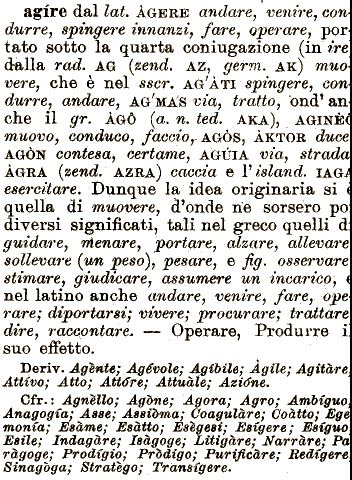 agíre dal lat. ÀGERE andare, venire, con-
durre, spingere innanzi, fare, operare, por-
tato sotto la quarta coniugazione (in ire)
dalla rad. AG (zend. AZ, germ. AK) muo-
vere, che è nel sscr. AG'ÀTI spingere, con-
durre, andare, AG'MAS via, tratto, ond' an-
che il gr. ÀGÔ (a. n. ted. AKA), AGINÈÔ
muovo, conduco, faccio, AGÒS, ÀKTOR duce,
AGÔN contesa, certame, AGÚIA via, strada,
ÀGRA (zend. AZRA) caccia e l'island. IAGA
esercitare. Dunque la idea originaria si è
quella di muovere, d'onde ne sorsero poi
diversi significati, tali nel greco quelli di
guidare, menare, portare, alzare, allevare,
sollevare (un peso), pesare, e fig. osservare,
stimare, giudicare, assumere un incarico, e
nel latino anche andare, venire, fare, ope-
rare; diportarsi; vivere; procurare; trattare,
dire, raccontare. — Operare, Produrre il
suo effetto.
Deriv. Agènte; Agévole; Agíbile; Àgile; Agitàre;
Attívo; Atto; Attóre; Attuàle; Azióne.
Cfr.: Agnèllo; Agòne; Agora; Agro; Ambíguo;
Anagogía; Asse; Assiòma; Coagulàre; Coàtto; Ege-
monía; Esàme; Esàtto; Eségesi; Esígere; Esíguo;
Esile; Indagàre; Isàgoge; Litigàre; Narràre; Pa-
ràgoge; Prodígio; Pròdigo; Purificàre; Redígere;
Sinagòga; Stratègo; Transígere.